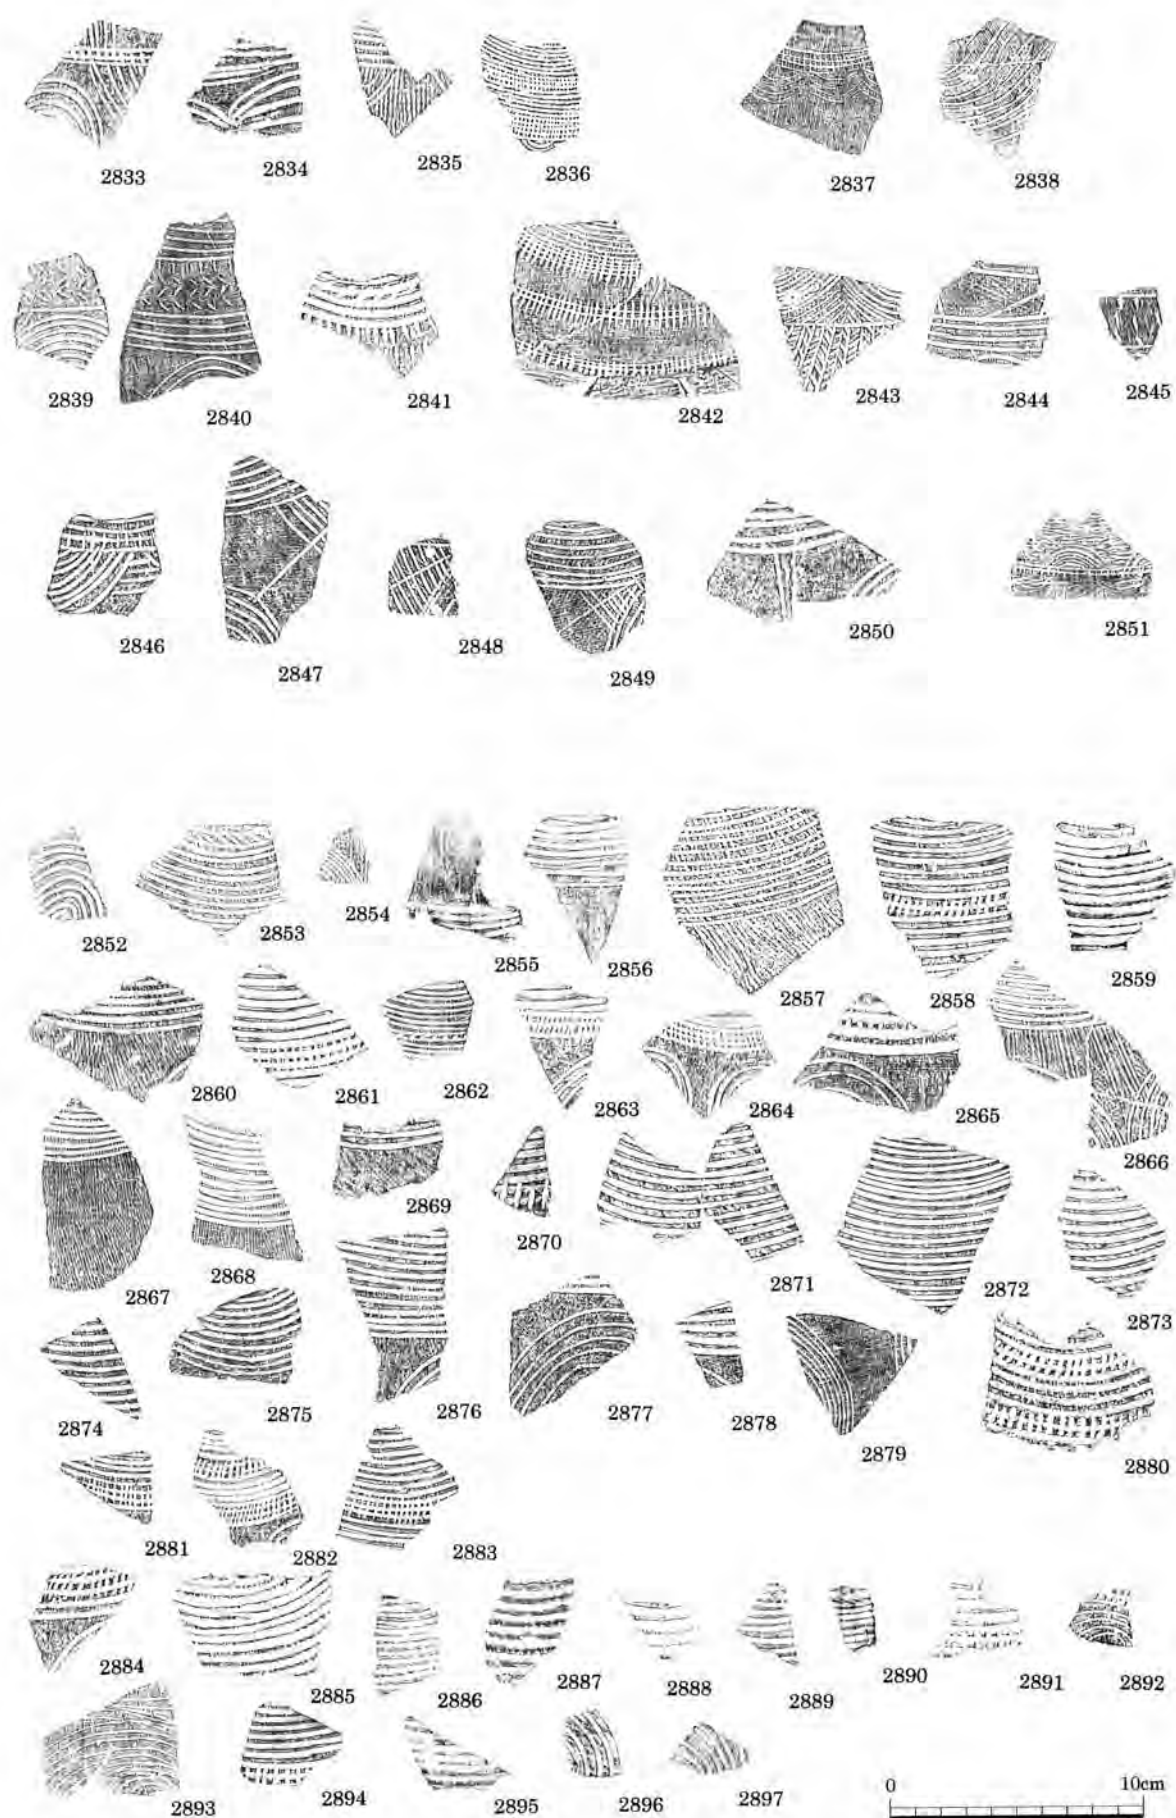 2833 2834 2835 2836 2837 2838
2839 2840 2841 2842 2843 2844 2845
2846 2847 2848 2849 2850 2851
2852 2853 2854 2855 2856 2857 2858 2859
2860 2861 2862 2863 2864 2865 2866
2867 2868 2869 2870 2871 2872 2873
2874 2875 2876 2877 2878 2879 2880
2881 2882 2883
2884 2885 2886 2887 2888 2889 2890 2891 2892
2893 2894 2895 2896 2897
0 10cm